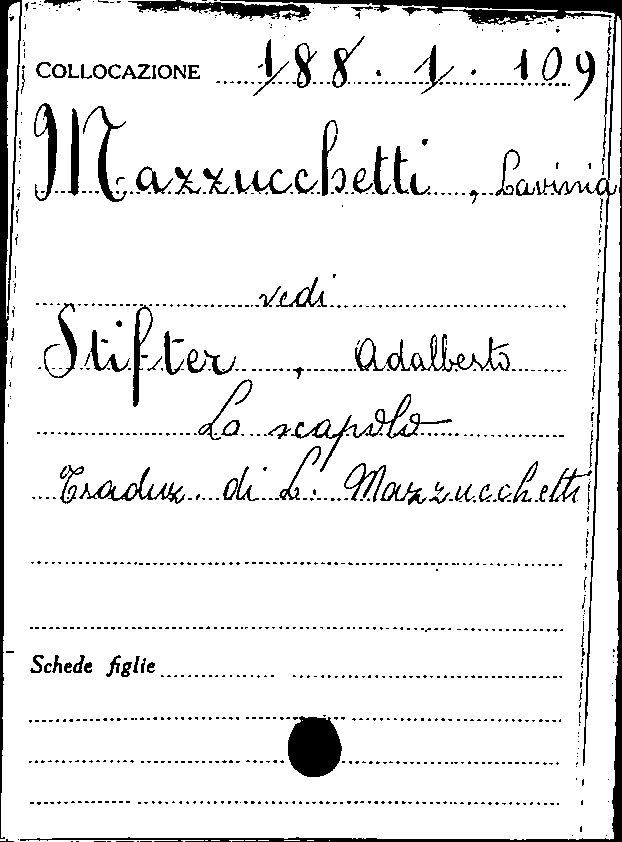 COLLOCAZIONE 188. 1. 109
Mazzucchetti, Lavinia
vedi
Stifter, Adalberto
Lo scapolo
Traduz. di L. Mazzucchetti
Schede figlie